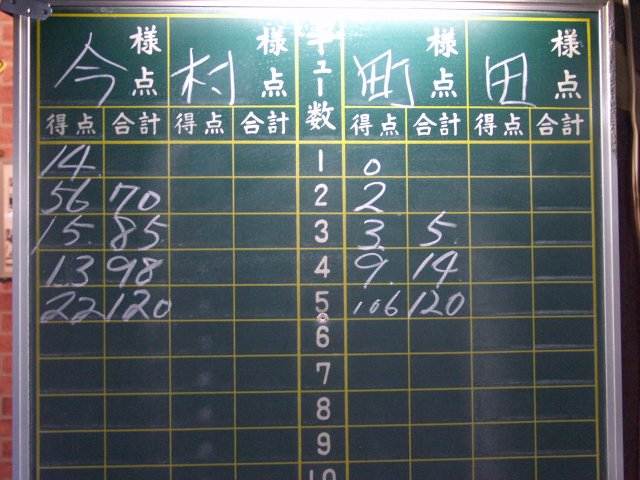 今 様点 村 様点 キュー数 町 様点 田 様点
得点 合計 得点 合計 得点 合計 得点 合計
14. 1 0
56 70 2 2
15. 85 3 3. 5.
13 98 4 9. 14
22 120 5 106 120
6
7
8
9
10